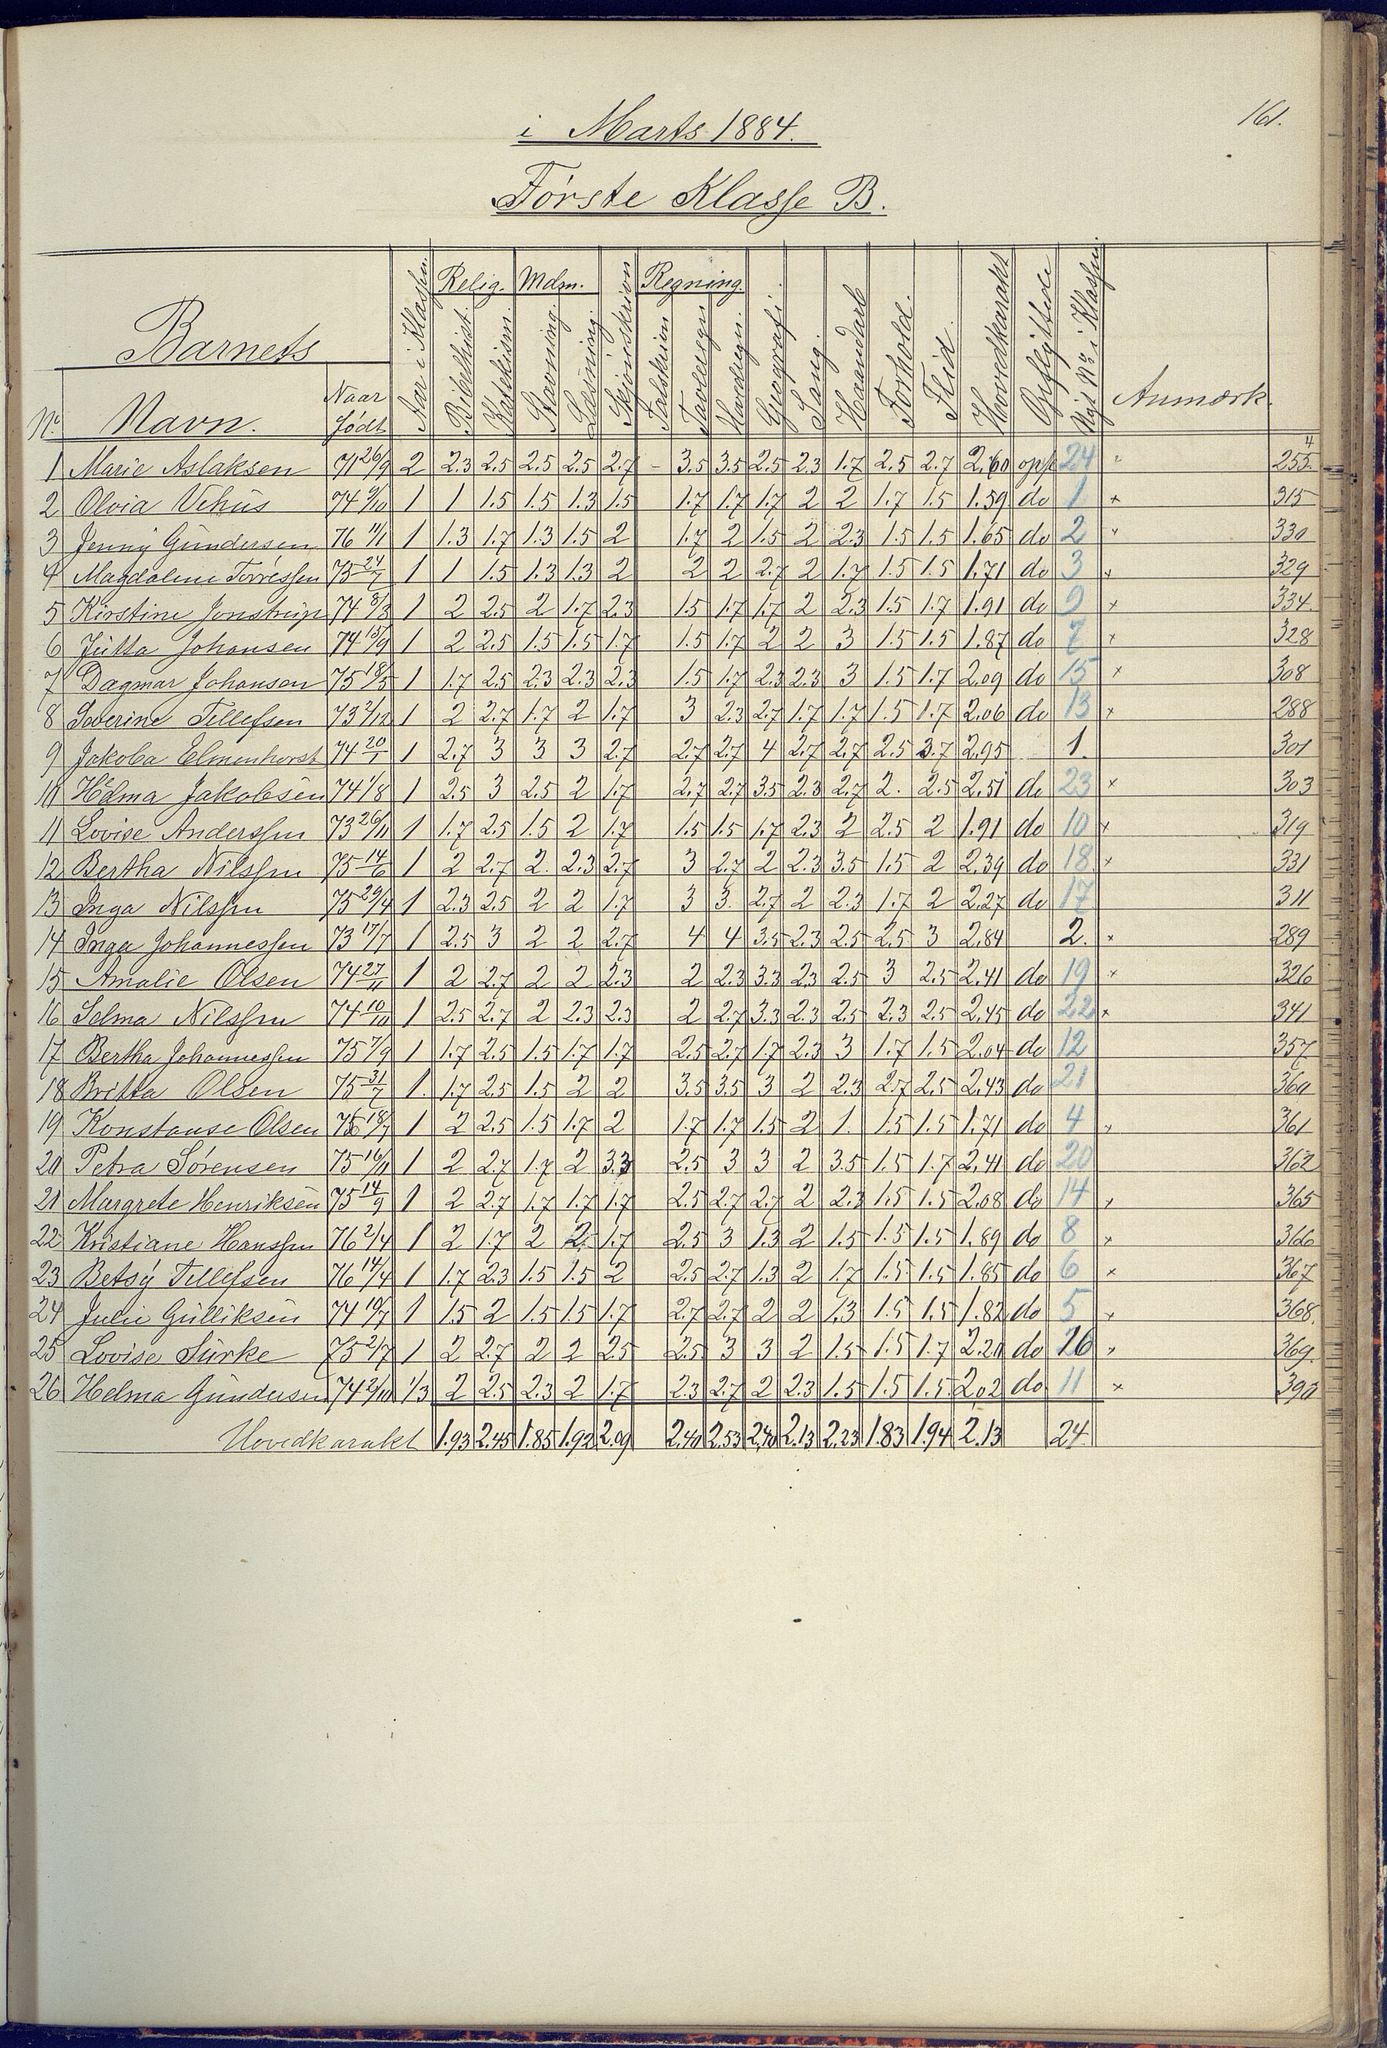 161.
i Marts 1884.
Første Klasse B.
Barnets
Nr. Navn. Naar Født Aar i Klassen. Relig. Bibelhist. Katekism. Mdm. Stavning. Læsning. Skjönskrivn Regning. Talskrivn Tavleregn Hovedregn. Geografi. Sang. Haandarb Forhold. Flid. Hovedkarakt Opflyttede Nyt No i Klassen. Anmærk.
1 Marie Aslaksen 71 26/9 2 2.3 2.5 2.5 2.5 2.7 - 3.5 3.5 2.5 2.3 1.7 2.5 2.7 2.60 opfl 24 " 255. 4
2 Olvia Vehus 74 9/10 1 1 1.5 1.5 1.3 1.5 1.7 1.7 1.7 2 2 1.7 1.5 1.59 do 1 × 315
3 Jenny Gundersen 76 11/1 1 1.3 1.7 1.3 1.5 2 1.7 2 1.5 2 2.3 1.5 1.5 1.65 do 2 " 330
4 Magdalene Torressen 75 24/7 1 1 1.5 1.3 1.3 2 2 2 2.7 2 1.7 1.5 1.5 1.71 do 3 × 329
5 Kirstine Jonstrup 74 8/3 1 2 2.5 2 1.7 2.3 1.5 1.7 1.7 2 2.3 1.5 1.7 1.91 do 9 × 334
6 Jutta Johansen 74 13/9 1 2 2.5 1.5 1.5 1.7 1.5 1.7 2 2 3 1.5 1.5 1.87 do 7 × 328
7 Dagmar Johansen 75 18/5 1 1.7 2.5 2.3 2.3 2.3 1.5 1.7 2.3 2.3 3 1.5 1.7 2.09 do 15 × 308
8 Severine Tellefsen 73 2/12 1 2 2.7 1.7 2 1.7 3 2.3 2.7 1.7 1.7 1.5 1.7 2.06 do 13 × 288
9 Jakoba Elmenhorst 74 20/1 1 2.7 3 3 3 2.7 2.7 2.7 4 2.7 2.7 2.5 3.7 2.95 1. 301
10 Helma Jakobsen 74 1/8 1 2.5 3 2.5 2 1.7 2.7 2.7 3.5 2.3 2.7 2. 2.5 2.51 do 23 × 303
11 Lovise Anderssen 73 26/11 1 1.7 2.5 1.5 2 1.7 1.5 1.5 1.7 2.3 2 2.5 2 1.91 do 10 × 319
12 Bertha Nilssen 75 14/6 1 2 2.7 2. 2.3 2.7 3 2.7 2 2.3 3.5 1.5 2 2.39 do 18 × 331
13 Inga Nilssen 75 29/4 1 2.3 2.5 2 2 1.7 3 3. 2.7 2 2.3 1.7 2 2.27 do 17 311
14 Inga Johannessen 73 17/7 1 2.5 3 2 2 2.7 4 4 3.5 2.3 2.5 2.5 3 2.84 2. × 289
15 Amalie Olsen 74 27/11 1 2 2.7 2 2 2.3 2 2.3 3.3 2.3 2.5 3 2.5 2.41 do 19 × 326
16 Selma Nilssen 74 10/10 1 2.5 2.7 2 2.3 2.3 2 2.7 3.3 2.3 2.5 2.3 2.5 2.45 do 22 × 341
17 Bertha Johannessen 75 7/9 1 1.7 2.5 1.5 1.7 1.7 2.5 2.7 1.7 2.3 3 1.7 1.5 2.04 do 12 357
18 Britta Olsen 75 31/7 1. 1.7 2.5 1.5 2 2 3.5 3.5 3 2 2.3 2.7 2.5 2.43 do 21 360
19 Konstanse Olsen 18/7 1 2 2.5 1.5 1.7 2 1.7 1.7 1.5 2 1. 1.5 1.5 1.71 do 4 × 361
20 Petra Sörensen 75 16/11 1 2 2.7 1.7 2 3.3 2.5 3 3 2 3.5 1.5 1.7 2.41 do 20 362
21 Margrete Henriksen 75 14/9 1 2 2.7 1.7 1.7 1.7 2.5 2.7 2.7 2 2.3 1.5 1.5 2.08 do 14 × 365
22 Kristiane Hanssen 76 2/4 1 2 1.7 2 2 1.7 2.5 3 1.3 2 1.5 1.5 1.5 1.89 do 8 × 366
23 Betsy Tellefsen 76 14/4 1 1.7 2.3 1.5 1.5 2 2.5 2.7 1.3 2 1.7 1.5 1.5 1.85 do 6 × 367
24 Julie Gulliksen 74 19/7 1 1.5 2 1.5 1.5 1.7 2.7 2.7 2 2 1.3 1.5 1.5 1.82 do 5 × 368.
25 Lovise Turke 75 2/7 1 2 2.7 2 2 2.5 2.5. 3 3 2 1.5 1.5 1.7 2.20 do 16 " 369.
26 Helma Gundersen 74 2/10 1/3 2 2.5 2.3 2 1.7 2.3 2.7 2 2.3 1.5 1.5 1.5. 2.02 do 11 × 390
Hovedkarakt 1.93 2.45 1.85 1.92 2.09 2.40 2.53 2.40 2.13 2.23 1.83 1.94 2.13 24.